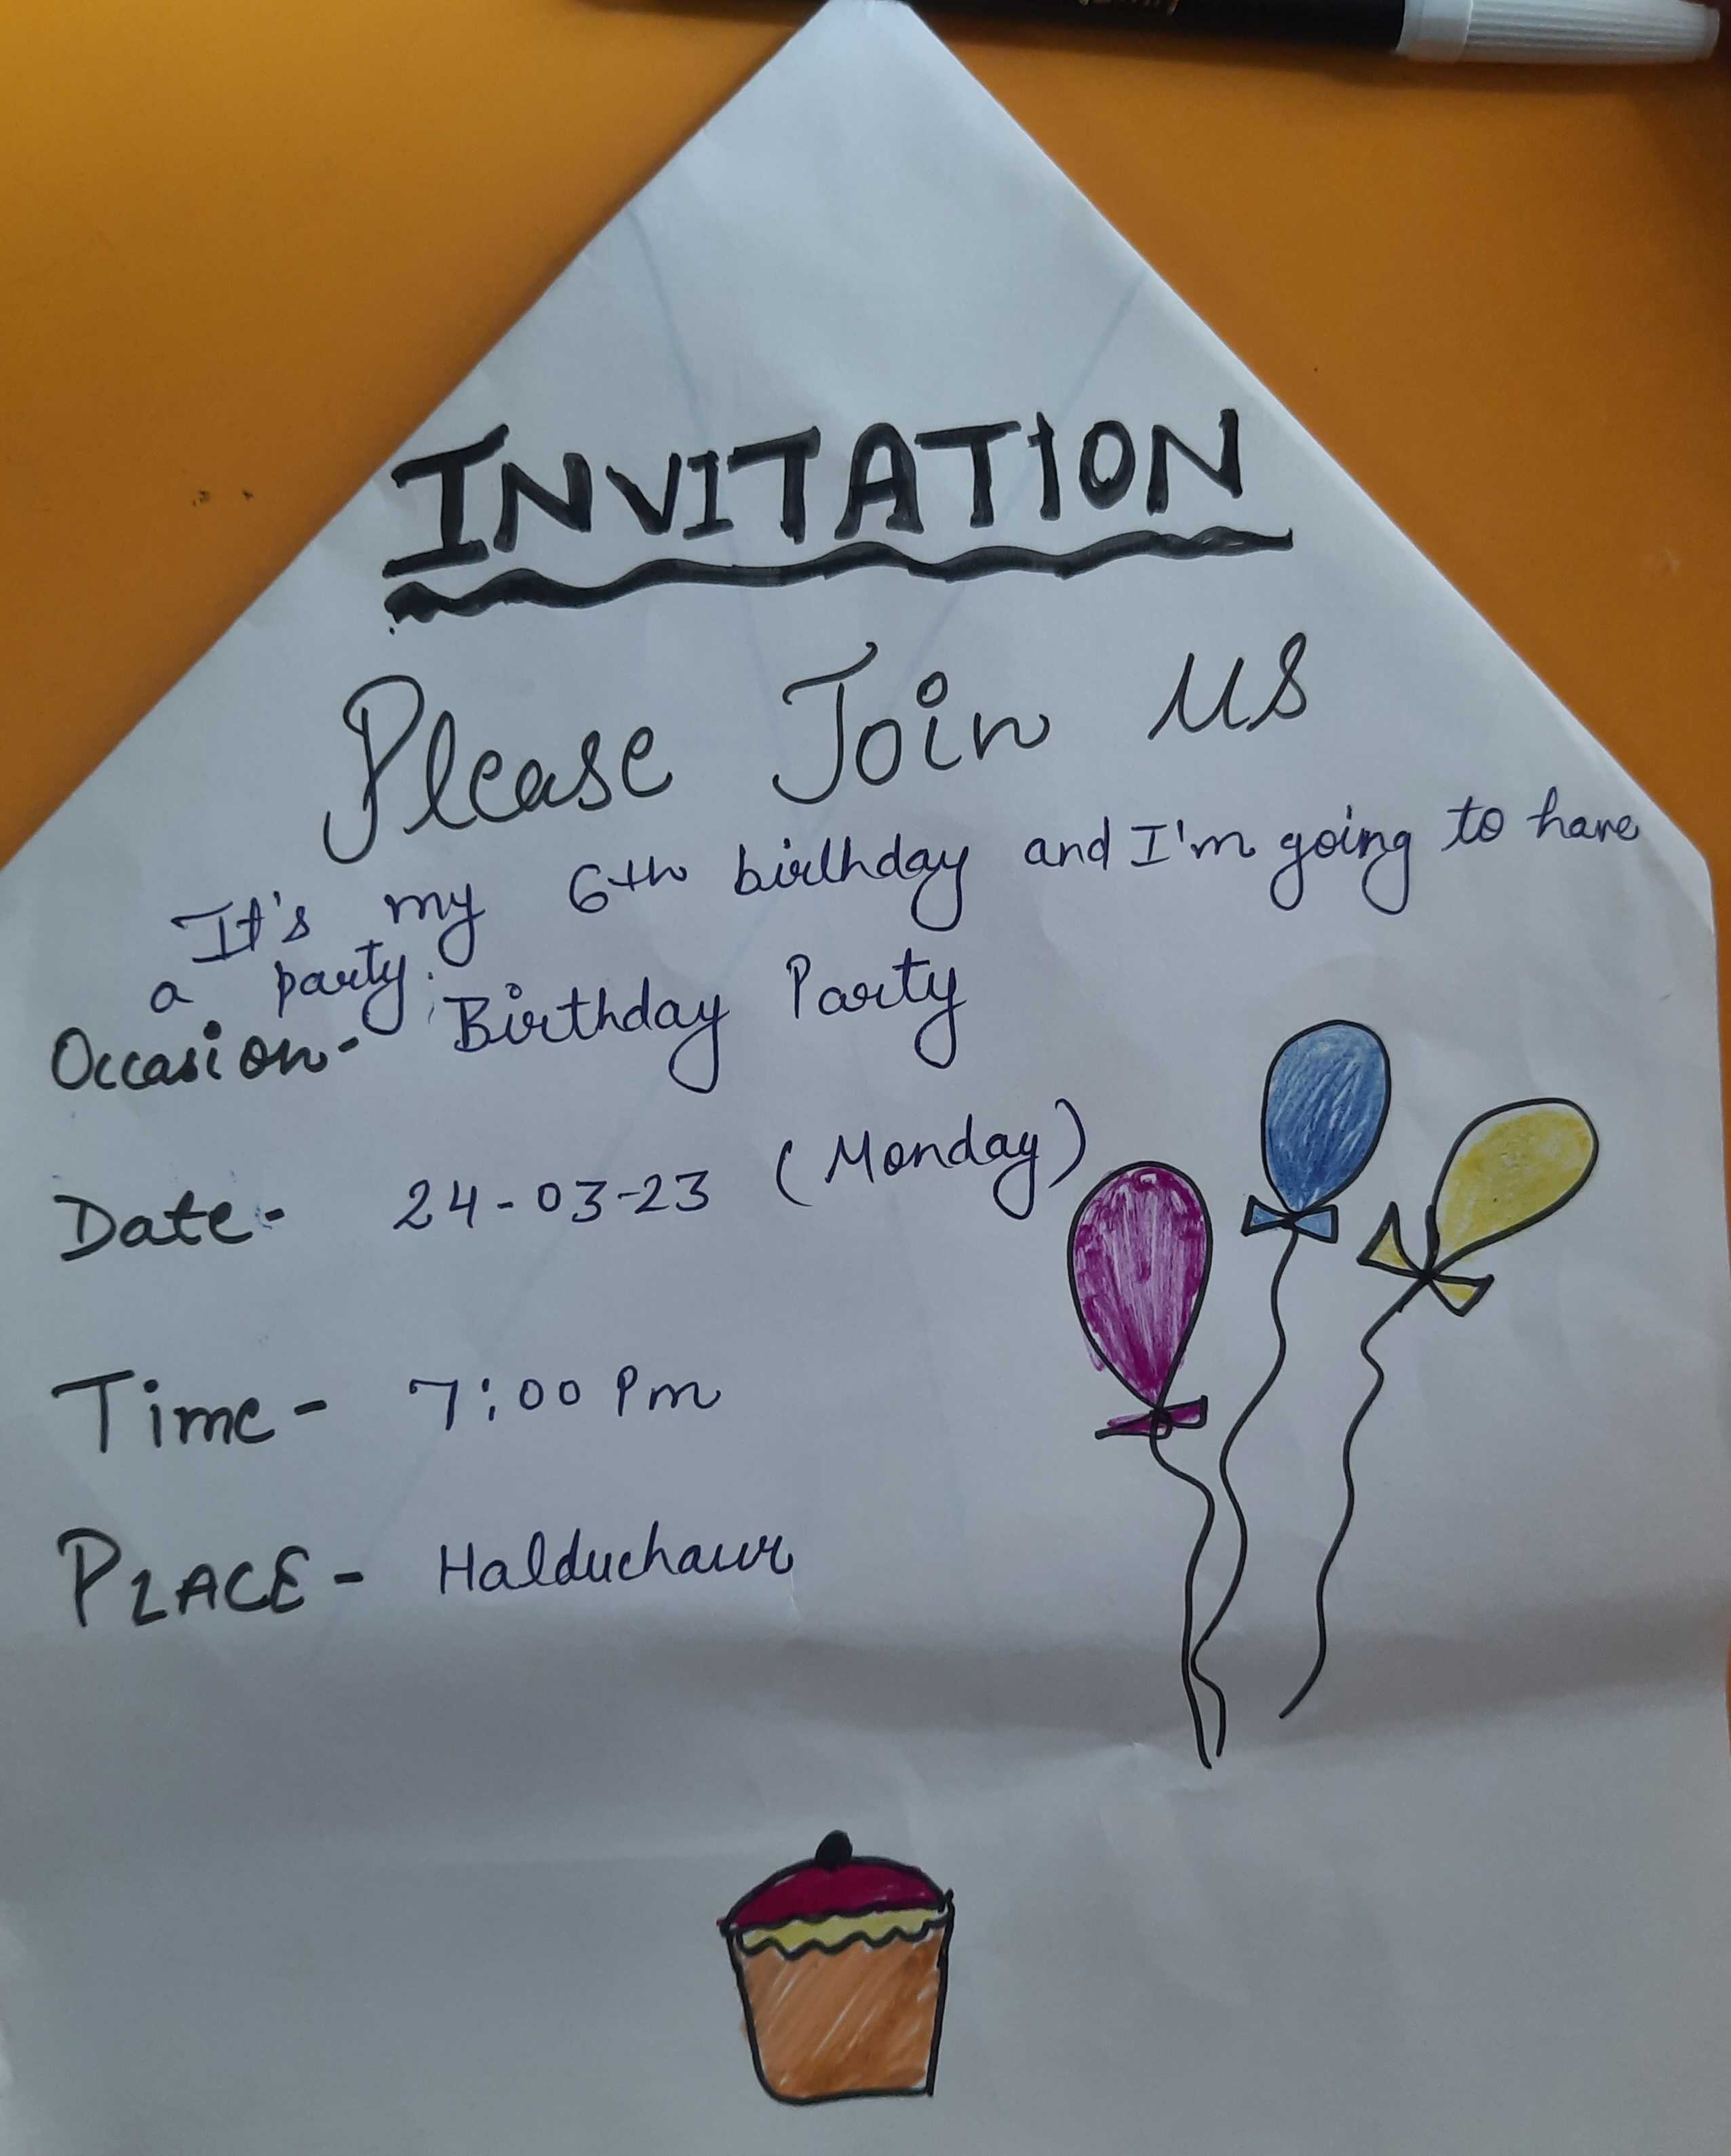 INVITATION
Please Join us
It's my 6th birthday and I'm going to have
a party.
Occasion- Birthday Party
Date- 24-03-23 (Monday)
Time- 7:00 Pm
PLACE- Halduchaur